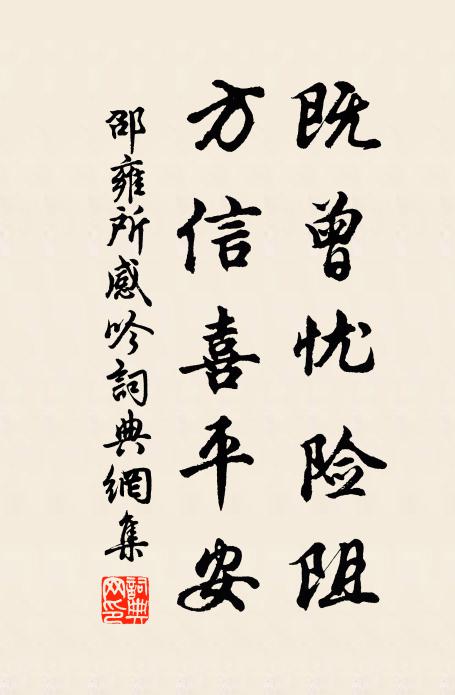 既曾忧险阻
方信喜平安
邵雍所感吟詞典網集
詞典网印